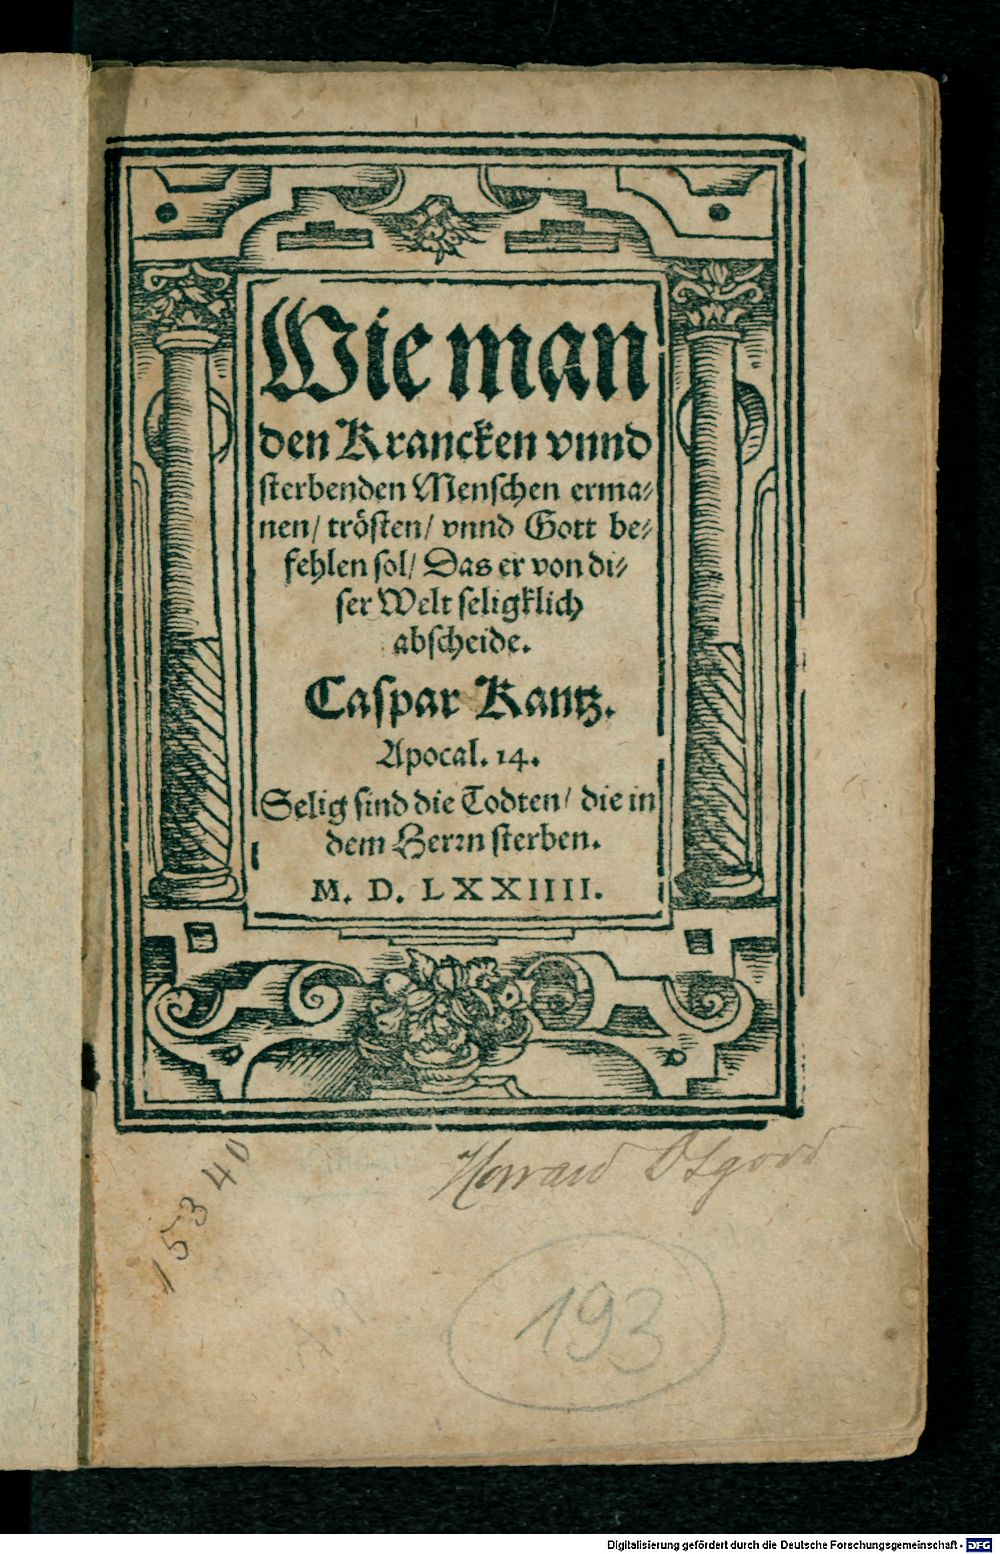 Wie man
den Krancken vnnd
sterbenden Menschen erma-
nen/ trösten/ vnnd Gott be-
fehlen sol/ Das er von di-
ser Welt seligklich
abscheide.
Caspar Kantz.
Apocal. 14.
Selig sind die Todten/ die in
dem Herrn sterben.
M. D. LXXIIII.
Howard Osgood
15340
193
Digitalisierung gefördert durch die Deutsche Forschungsgemeinschaft - DFG